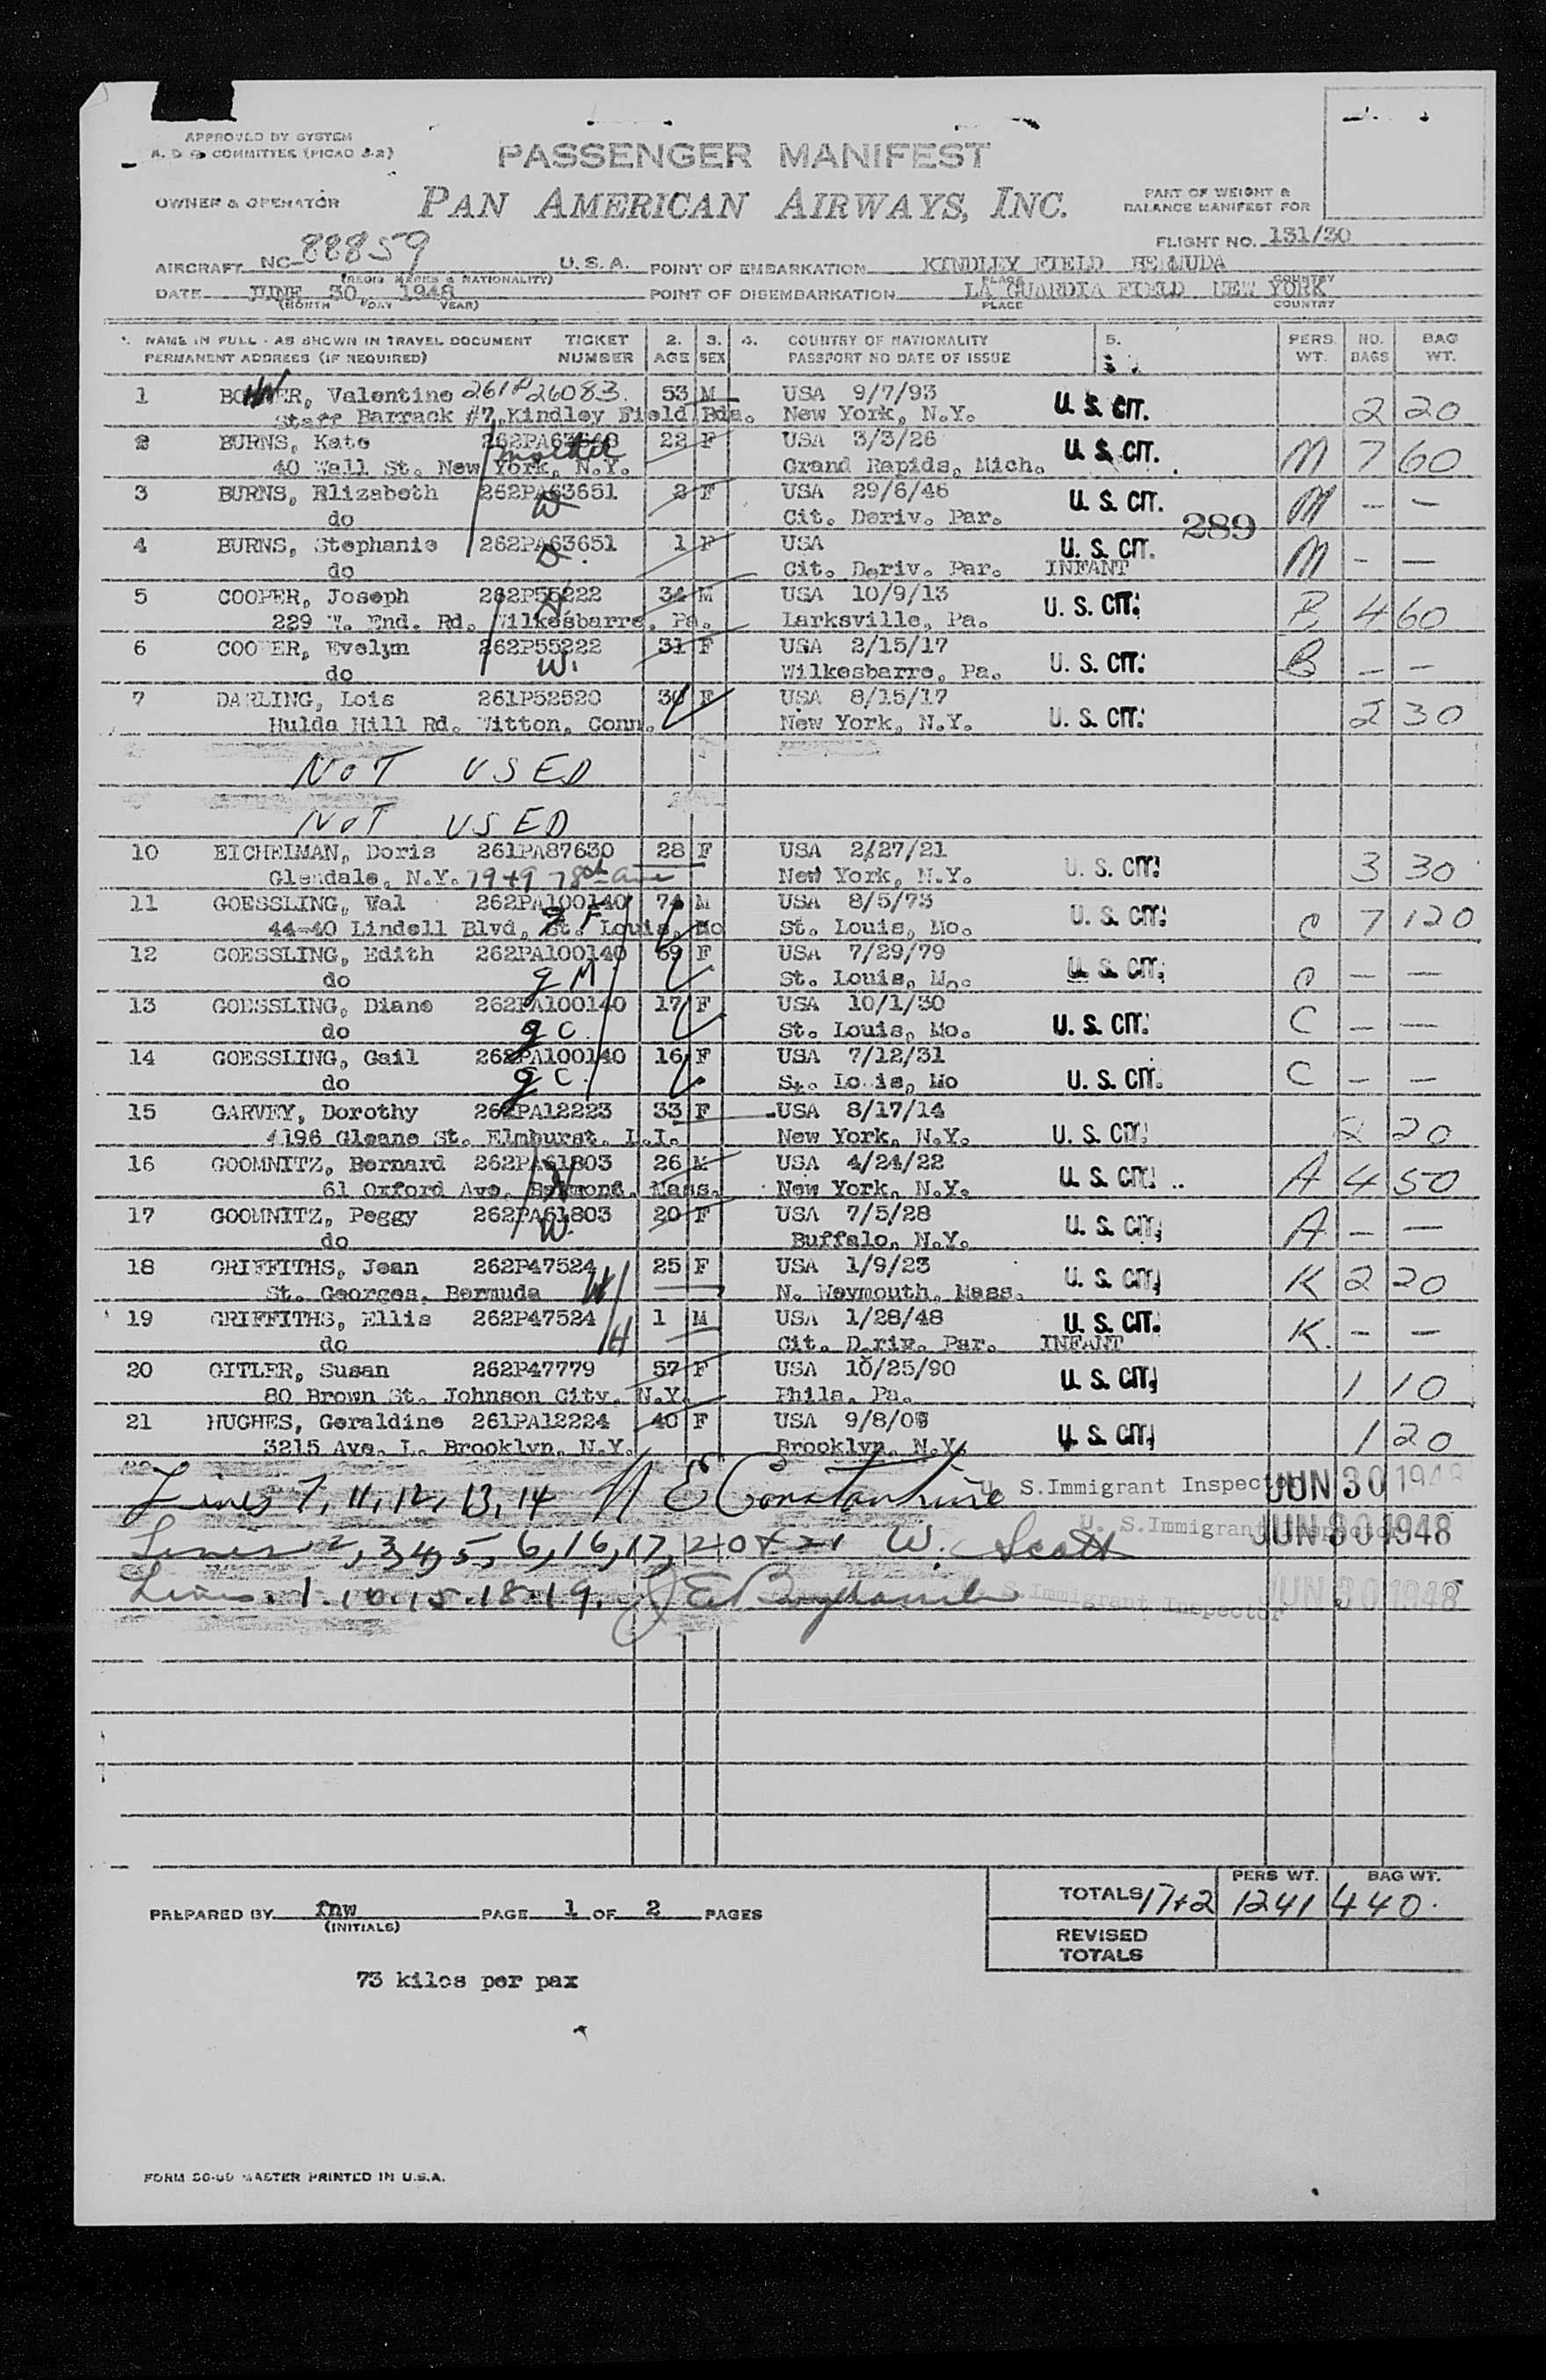 APPROVED BY SYSTEM
A. D & COMMITTEE (PICAO 3-2)
PASSENGER MANIFEST
OWNER & OPERATOR
PAN AMERICAN AIRWAYS, INC.
PART OF WEIGHT &
BALANCE MANIFEST FOR
FLIGHT NO. 131/30
AIRCRAFT NC-88859 U.S.A. POINT OF EMBARKATION KINDLEY FIELD BERMUDA
(REGIS MARKS & NATIONALITY) PLACE COUNTRY
DATE JUNE 30, 1948 POINT OF DISEMBARKATION LA GUARDIA FIELD NEW YORK
(MONTH DAY YEAR) PLACE COUNTRY
1. NAME IN FULL - AS SHOWN IN TRAVEL DOCUMENT TICKET 2. 3. 4. COUNTRY OF NATIONALITY 5. PERS. NO. BAG
PERMANENT ADDRESS (IF REQUIRED) NUMBER AGE SEX PASSPORT NO DATE OF ISSUE WT. BAGS WT.
1 Valentine 261P26083. 53 M USA 9/7/93 U. S. CIT. 2 20
Staff Barrack #7,Kindley Field,Bda. New York, N.Y.
2 BURNS, Kate 22 F USA 3/3/26 U. S. CIT. M 7 60
mother
40 Wall St. New York, N.Y. Grand Rapids, Mich.
3 BURNS, Elizabeth 262PA63651 2 F USA 29/6/46 U. S. CIT. M - -
do D Cit. Deriv. Par. 289
4 BURNS, Stephanie 262PA63651 1 F USA U. S. CIT. M - -
do D. Cit. Deriv. Par. INFANT
5 COOPER, Joseph 262P55222 34 M USA 10/9/13 U. S. CIT. B 4 60
229 W. End. Rd. Wilkesbarre, Pa. H. Larksville, Pa.
6 COOPER, Evelyn 262P55222 31 F USA 2/15/17 U. S. CIT. B - -
do W. Wilkesbarre, Pa.
7 DARLING, Lois 261P52520 30 F USA 8/15/17 U. S. CIT. 2 30
Hulda Hill Rd. Witton, Conn. New York, N.Y.
NOT USED
NOT USED
10 EICHEIMAN, Doris 261PA87630 28 F USA 2/27/21 U. S. CIT. 3 30
Glendale, N.Y. 79+9 78th Ave New York, N.Y.
11 GOESSLING, Wal 262PA100140 74 M USA 8/5/73 U. S. CIT. C 7 120
44-40 Lindell Blvd, St. Louis, Mo g F St. Louis, Mo.
12 GOESSLING, Edith 262PA100140 69 F USA 7/29/79 U. S. CIT. C - -
do g M St. Louis, Mo.
13 GOESSLING, Diane 262PA100140 17 F USA 10/1/30 U. S. CIT. C - -
do g C. St. Louis, Mo.
14 GOESSLING, Gail 262PA100140 16 F USA 7/12/31 U. S. CIT. C - -
do g C. St. Louis, Mo
15 GARVEY, Dorothy 262PA12223 33 F USA 8/17/14 U. S. CIT. 20
4196 Gleane St. Elmhurst. L.I. New York, N.Y.
16 GOOMNITZ, Bernard 262PA61803 26 M USA 4/24/22 U. S. CIT. A 4 50
61 Oxford Ave, Mass. H New York, N.Y.
17 GOOMNITZ, Peggy 262PA61803 20 F USA 7/5/28 U. S. CIT. A - -
do W. Buffalo, N.Y.
18 GRIFFITHS, Jean 262P47524 25 F USA 1/9/23 U. S. CIT. K 2 20
St. Georges, Bermuda N. Weymouth, Mass.
19 GRIFFITHS, Ellis 262P47524 1 M USA 1/28/48 U. S. CIT. K. - -
do Cit. Deriv. Par. INFANT
20 GITLER, Susan 262P47779 57 F USA 10/25/90 U. S. CIT. 1 10
80 Brown St. Johnson City, N.Y. Phila. Pa.
21 HUGHES, Geraldine 261PA12224 40 F USA U. S. CIT. 1 20
3215 Ave. L. Brooklyn, N.Y. Brooklyn, N.Y.
Lines 7, 11, 12, 13, 14 E Constantine U. S.Immigrant Inspector JUN 30 1948
Lines 2, 3, 4, 5, 6, 16, 17, 20 + 21 W. Scott U. S.Immigrant Inspector JUN 30 1948
Lines. 1. 10. 15. 18. 19. S.Immigrant Inspector JUN 30 1948
PERS WT. BAG WT.
TOTALS 17+2 1241 440.
PREPARED BY fnw PAGE 1 OF 2 PAGES
(INITIALS)
REVISED
TOTALS
73 kilos per pax
MASTER PRINTED IN U.S.A.